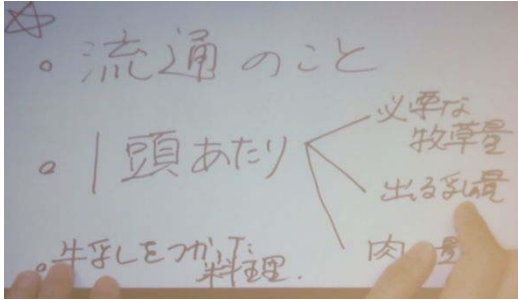 ・流通のこと
・1頭あたり
必要な
牧草量
出る乳量
肉 量
・牛乳をつかった
料理.